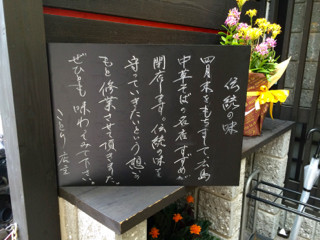 伝統の味
四月末をもちまして広島
中華そばの名店すずめが
閉店します。伝統の味を
守っていきたいという想いを
もと修業させて頂きました。
ぜひとも味わってみて下さい。
店主